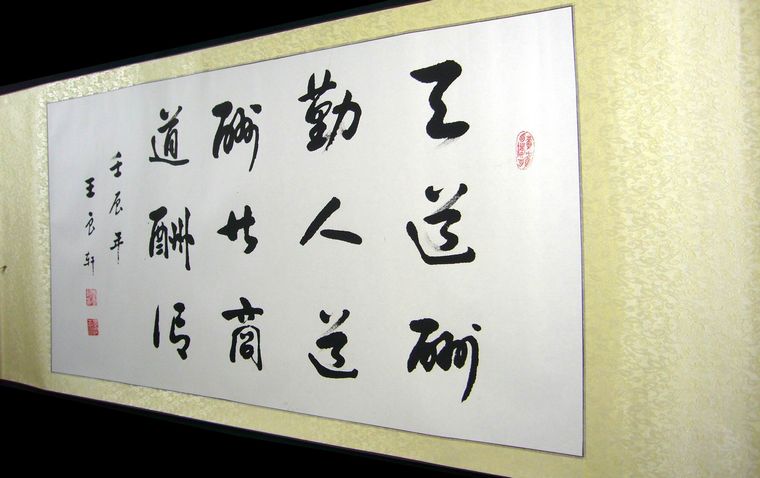 天道酬
勤人道
酬善商
道酬信
壬辰年
王良轩